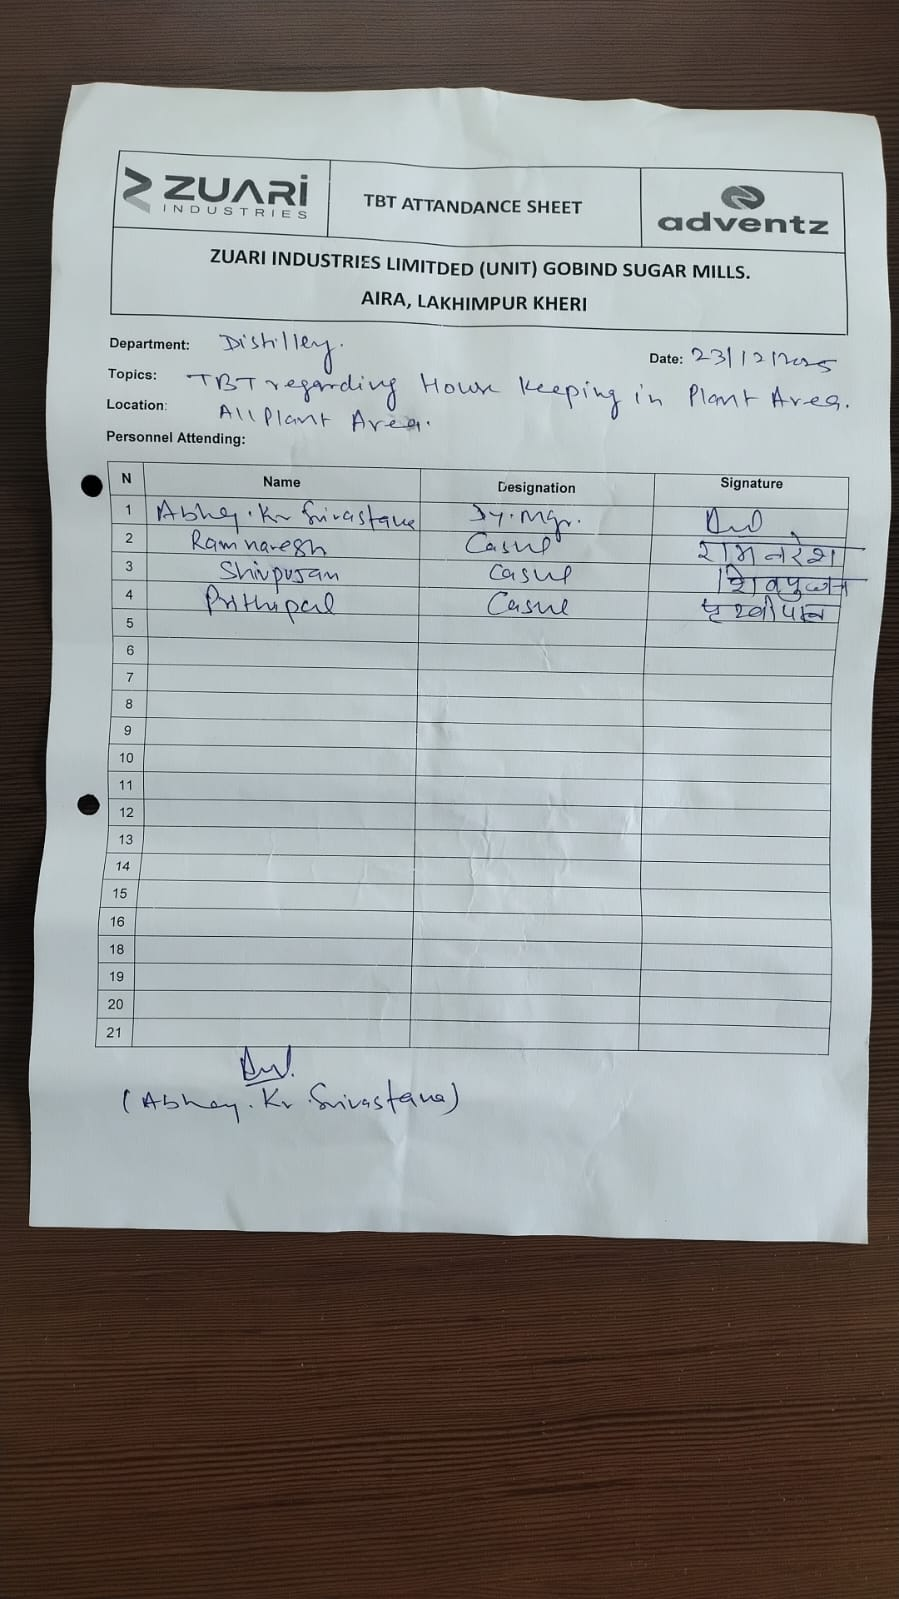 ZUARI INDUSTRIES
TBT ATTANDANCE SHEET
adventz
ZUARI INDUSTRIES LIMITDED (UNIT) GOBIND SUGAR MILLS.
AIRA, LAKHIMPUR KHERI
Department: Distillery.
Date: 23/12/2025
Topics: TBT regarding House keeping in Plant Area.
Location: All Plant Area.
Personnel Attending:
N Name Designation Signature
1 Abhay. Kr Srivastava Dy. Mgr.
2 Ramnaresh Casul रामनरेश
3 Shivpujan Casul शिवपुजन
4 Prithipal Casul
5
6
7
8
9
10
11
12
13
14
15
16
18
19
20
21
(Abhay. Kr. Srivastava)